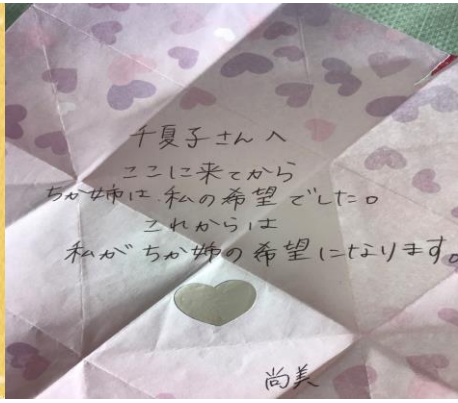 千夏子さんへ
ここに来てから
ちか姉は、私の希望でした。
これからは
私がちか姉の希望になります。
尚美